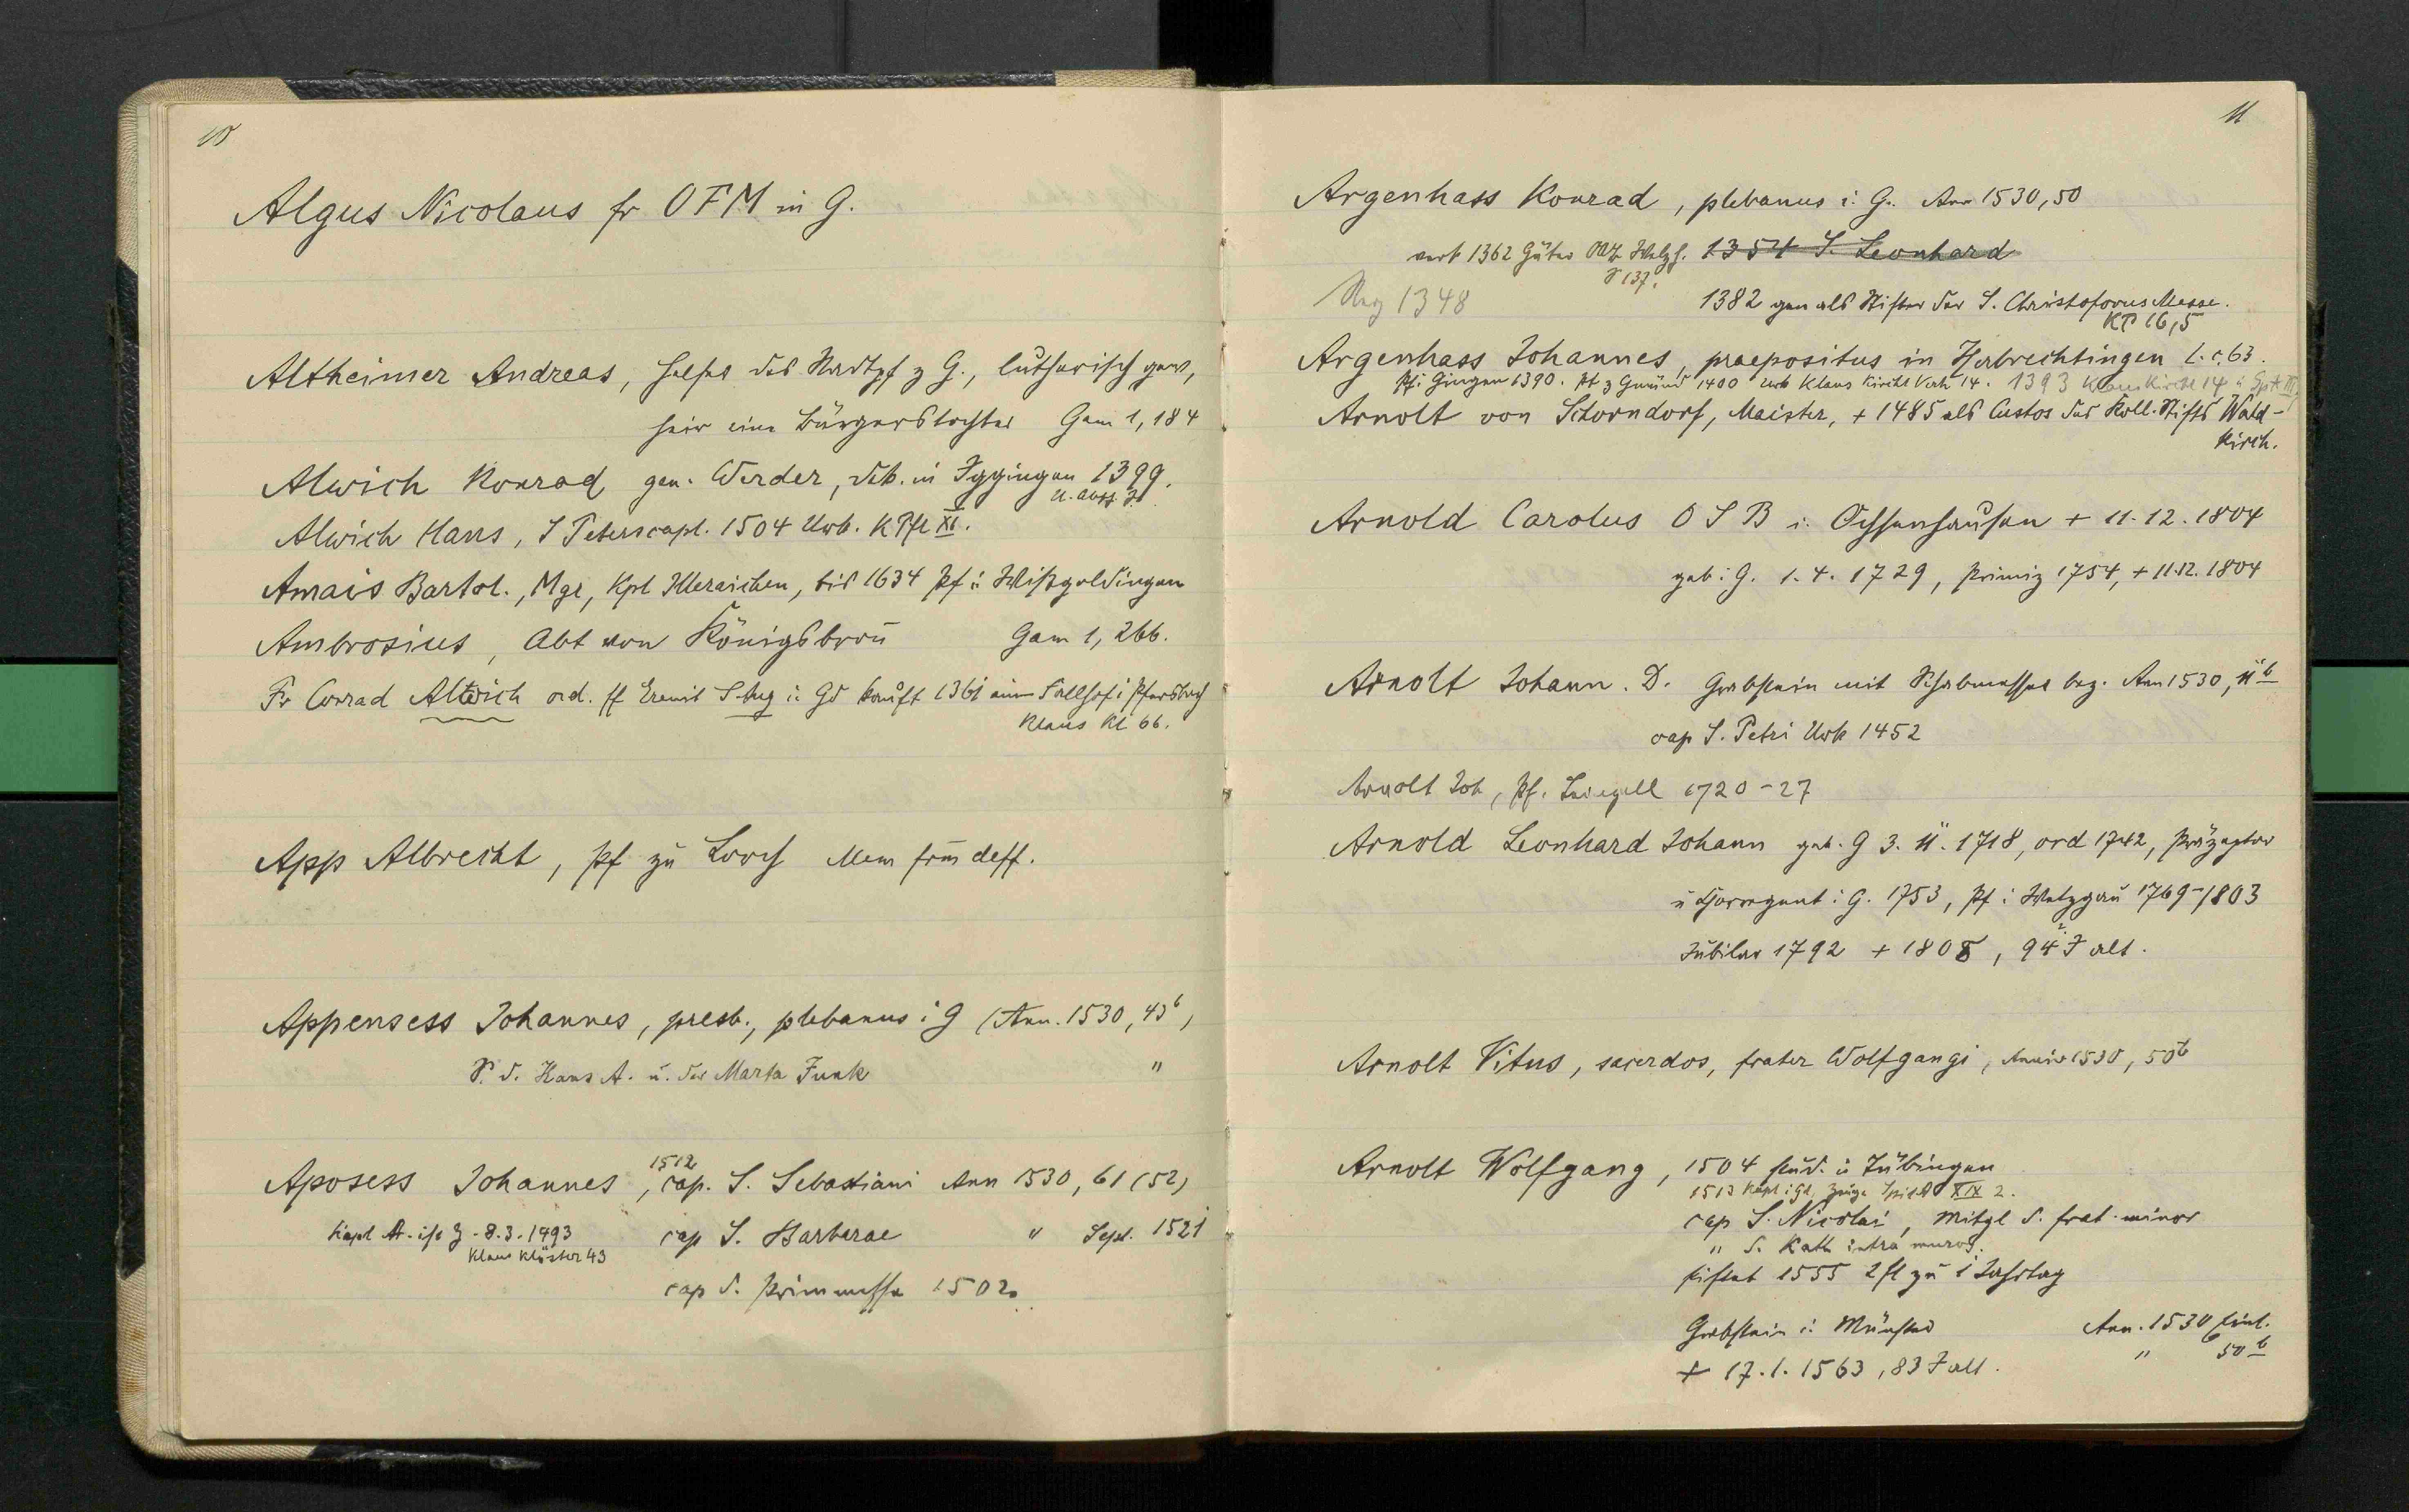 10
Algus Nicolaus fr OFM in G.
Altheimer Andreas, Helfer des Stadtpf z G., lutherisch gew,
heir eine Bürgerstochter Gam 1, 184
Alwich Konrad gen. Werder, Vik. in Iggingen 1399.
U. Augg. 31
Alwich Hans, S Peterscapl. 1504 Urb. K Pfl XI.
Amais Bartol., Mgr, Kpl Illeraichen, bis 1634 Pf i Wißgoldingen
Ambrosius, Abt von Königsbron̄ Gam 1, 266.
Fr Conrad Altwich ord. ff Eremit S Aug i. Gd kauft 1361 ein Fallhof i Pfersbach
Klaus Kl 66.
App Albrecht, Pf zu Lorch Mem deff.
Appensess Johannes, presb., plebanus i G (Ann. 1530, 43b)
S. d. Hans A. u. der Marta Funk "
1512
Aposess Johannes, cap. S. Sebastiani Ann 1530, 61 (52)
Kapl A. ist Z. 8.3.1493 cap S. Barbarae " Sept. 1521
Klaus Klöster 43
cap d. Primmesse 1502
11
Argenhass Konrad, plebanus i. G. Ann 1530, 50
verk 1362 Güter 1354 S. Leonhard
S 137.
Reg 1348 1382 gen als Stifter der S. Christoforus Messe.
KP 16,5
Argenhass Johannes, praepositus in Herbrechtingen l. c. 63.
Pf i Gingen 1390. Pf z Gmünd 1400 Urk Klaus Kirchl Verh 14. 1393 Klaus Kirchl 14 u Spit III
Arnolt von Schorndorf, Maister, + 1485 als Custos des Koll. Stifts Wald-
kirch.
Arnold Carolus OSB i. Ochsenhausen + 11.12.1804
geb i G. 1.4.1729, Primiz 1754, + 11.12.1804
Arnolt Johann. D. Grabstein mit Schabmesser bez. Ann 1530, 11b
cap S. Petri Urk 1452
Arnolt Joh, Pf. Leinzell 1720-27
Arnold Leonhard Johann geb. G 3.11.1718, ord 1742, Präzeptor
u Chorregent i G. 1753, Pf i Wetzgau 1769-1803
Jubilar 1792 + 1808, 94? J alt.
Arnolt Vitus, sacerdos, frater Wolfgangi, Anniv 1530, 50b
Arnolt Wolfgang, 1504 stud. i Tübingen
1513 Kapl i Gd, Zeuge Spit A XIX 2.
cap S. Nicolai, Mitgl d. frat. minor
" S. Kath intra muros.
stiftet 1555 2 fl zu 1 Jahrtag
Grabstein i. Münster Ann. 1530 Einl.
+ 17.1.1563, 83 J alt. " 50b